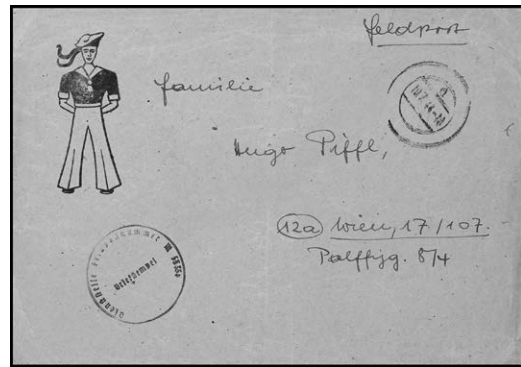 Feldpost
Familie
Hugo Piffl,
12a Wien, 17/107.
Palffyg. 8/4
Dienststelle Feldpostnummer M
Briefstempel